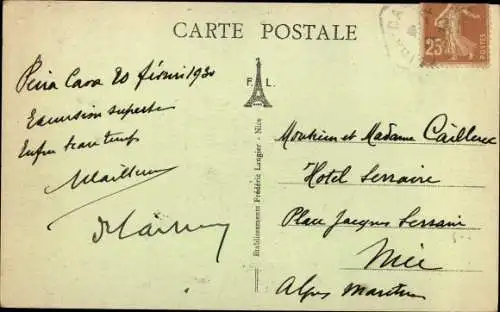 CARTE POSTALE
Peira Cava 20 février 1930
Excursion superbe
Enfin beau temps
F. L.
Etablissements Frédéric Laugier - Nice
25
Monsieur et Madame Cailleux
Hotel
Place Jacques
Nice
Alpes Maritimes